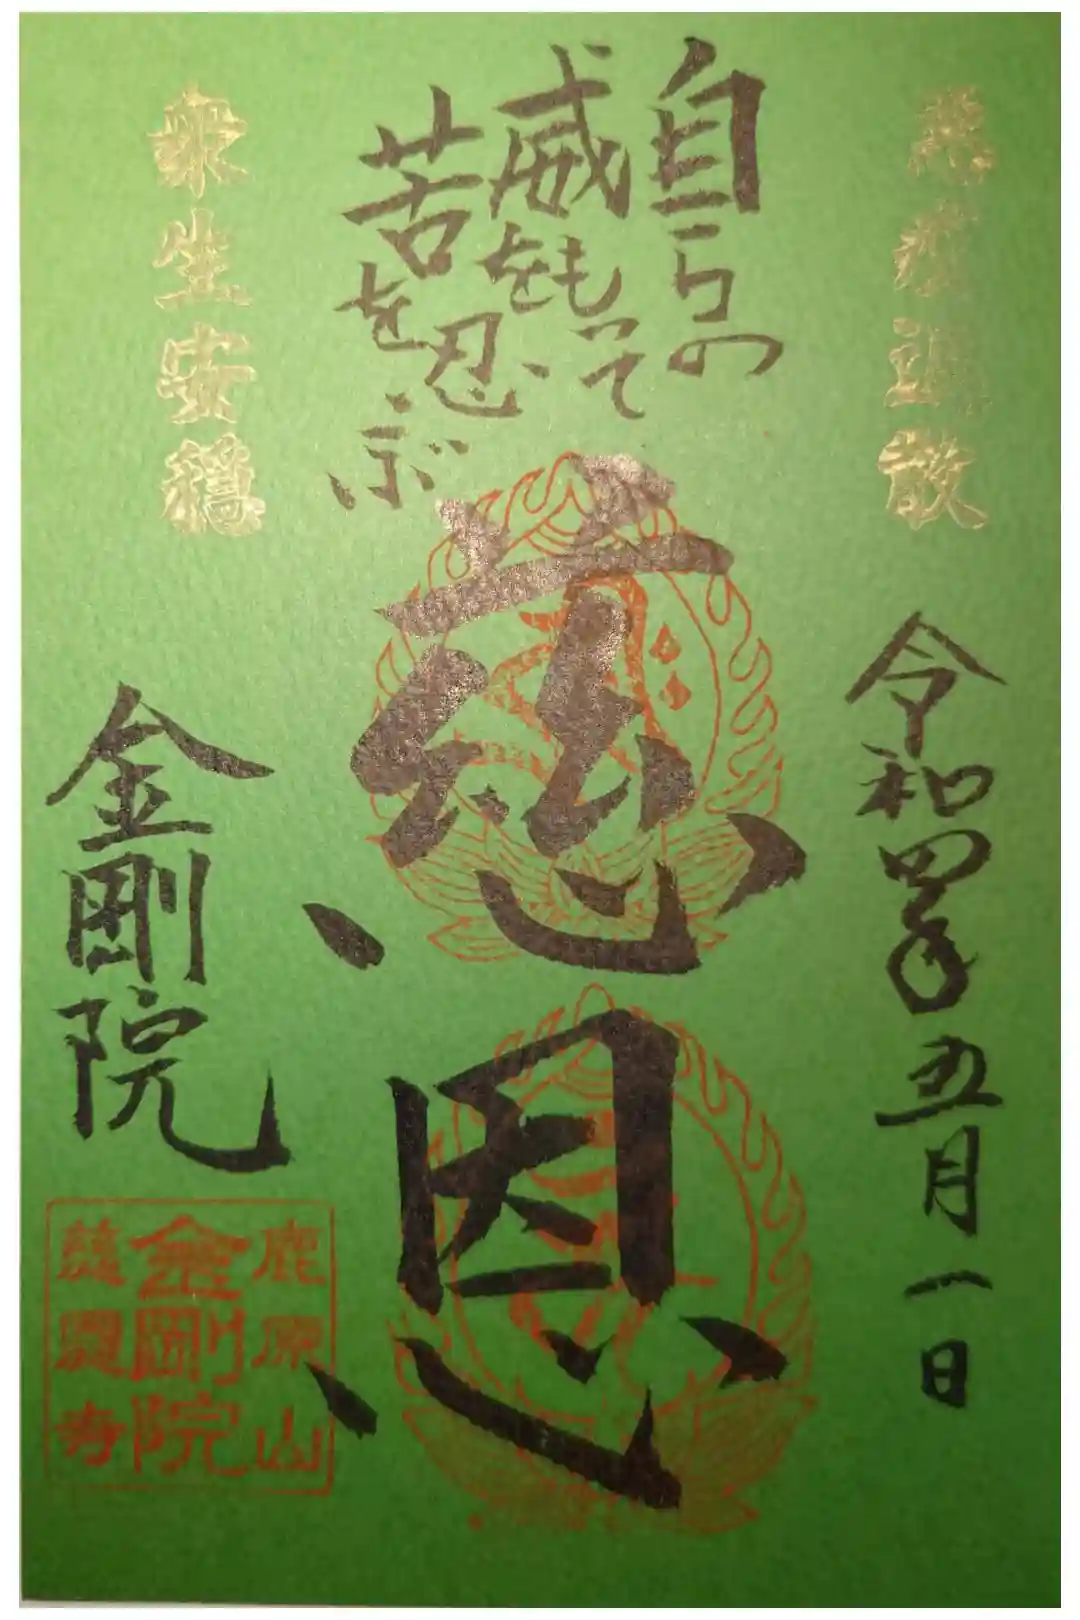 悪疫退散
令和四年五月一日
自らの
威をもって
苦を忍ぶ
慈恩
衆生安穏
金剛院
鹿原山
金剛院
慈恩寺